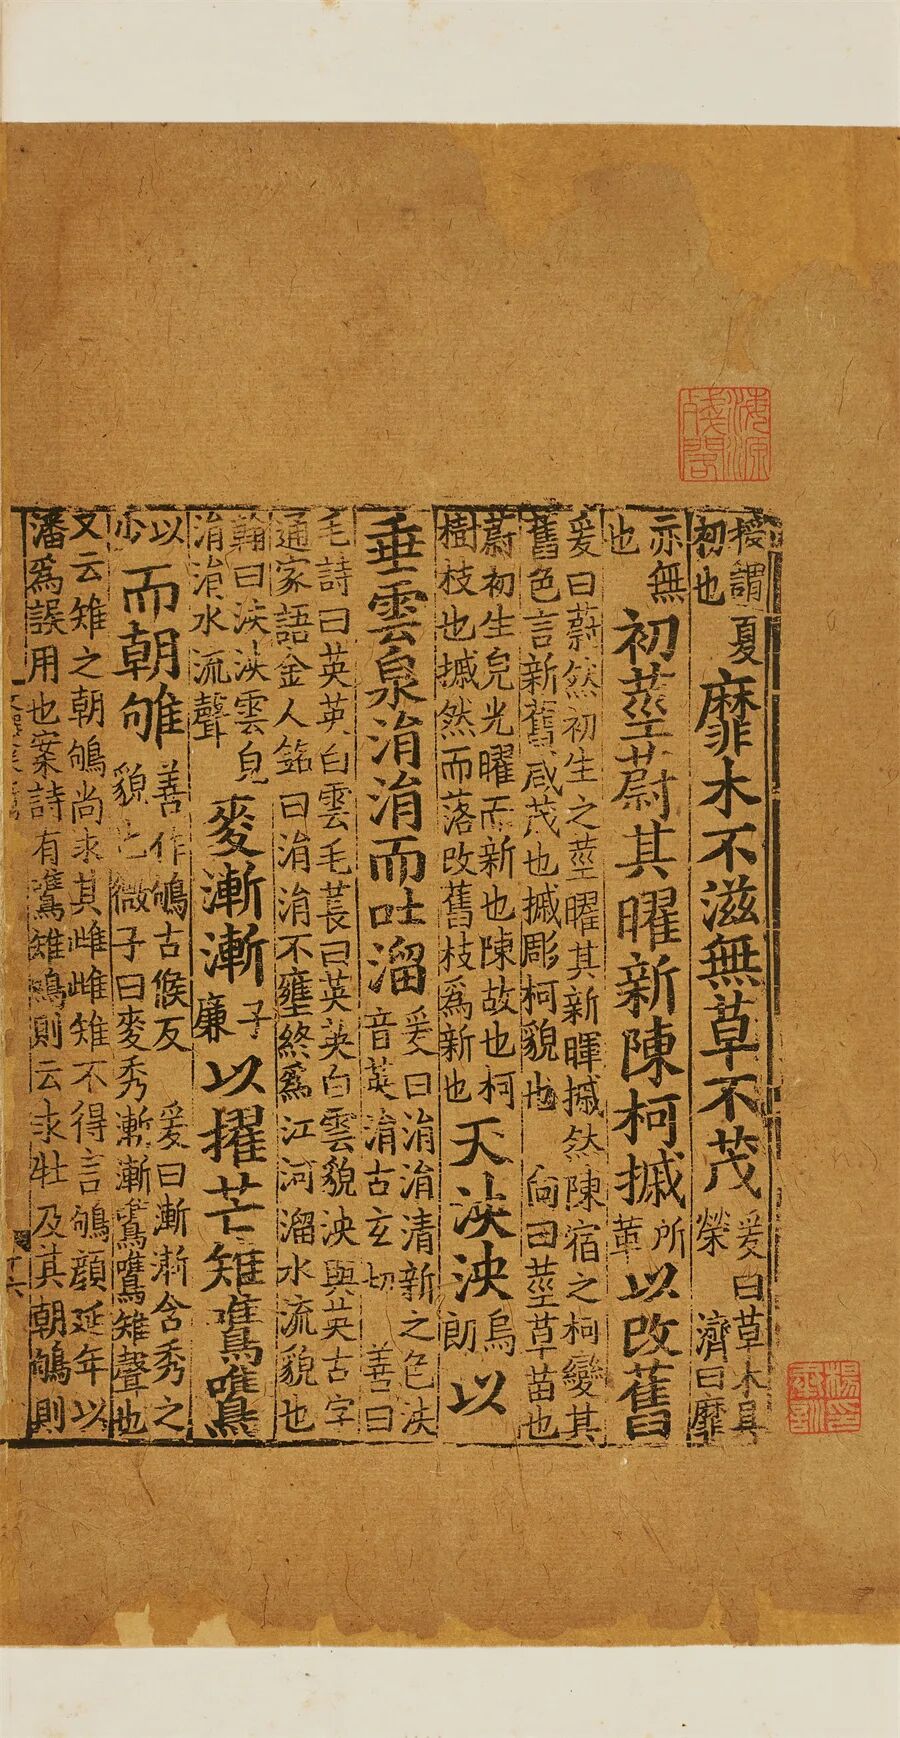 授謂
初也
夏
靡木不滋無草不茂
爰曰草木具
榮 濟曰靡
亦無
也
初莖蔚其曜新陳柯槭
所
革
以改舊
爰曰蔚然初生之莖曜其新暉槭然陳宿之柯變其
舊色言新舊咸茂也槭彫柯貌也 向曰莖草苗也
蔚初生皃光曜而新也陳故也柯
樹枝也槭然而落改舊枝爲新也
天泱泱
烏
朗
以
垂雲泉涓涓而吐溜
爰曰涓涓清新之色泱
音英涓古玄切 善曰
毛詩曰英英白雲毛萇曰英英白雲貌泱與英古字
通家語金人銘曰涓涓不壅終爲江河溜水流貌也
翰曰泱泱雲皃
涓涓水流聲
麥漸漸
子
廉
以擢芒雉鷕鷕
以
少
而朝雊
善作鴝古候反 爰曰漸漸含秀之
貌也微子曰麥秀漸漸鷕鷕雉聲也
又云雉之朝鴝尚求其雌雌雉不得言鴝顔延年以
潘爲誤用也案詩有鷕雉鳴則云求牡及其朝鴝則
十六
海源
殘閣